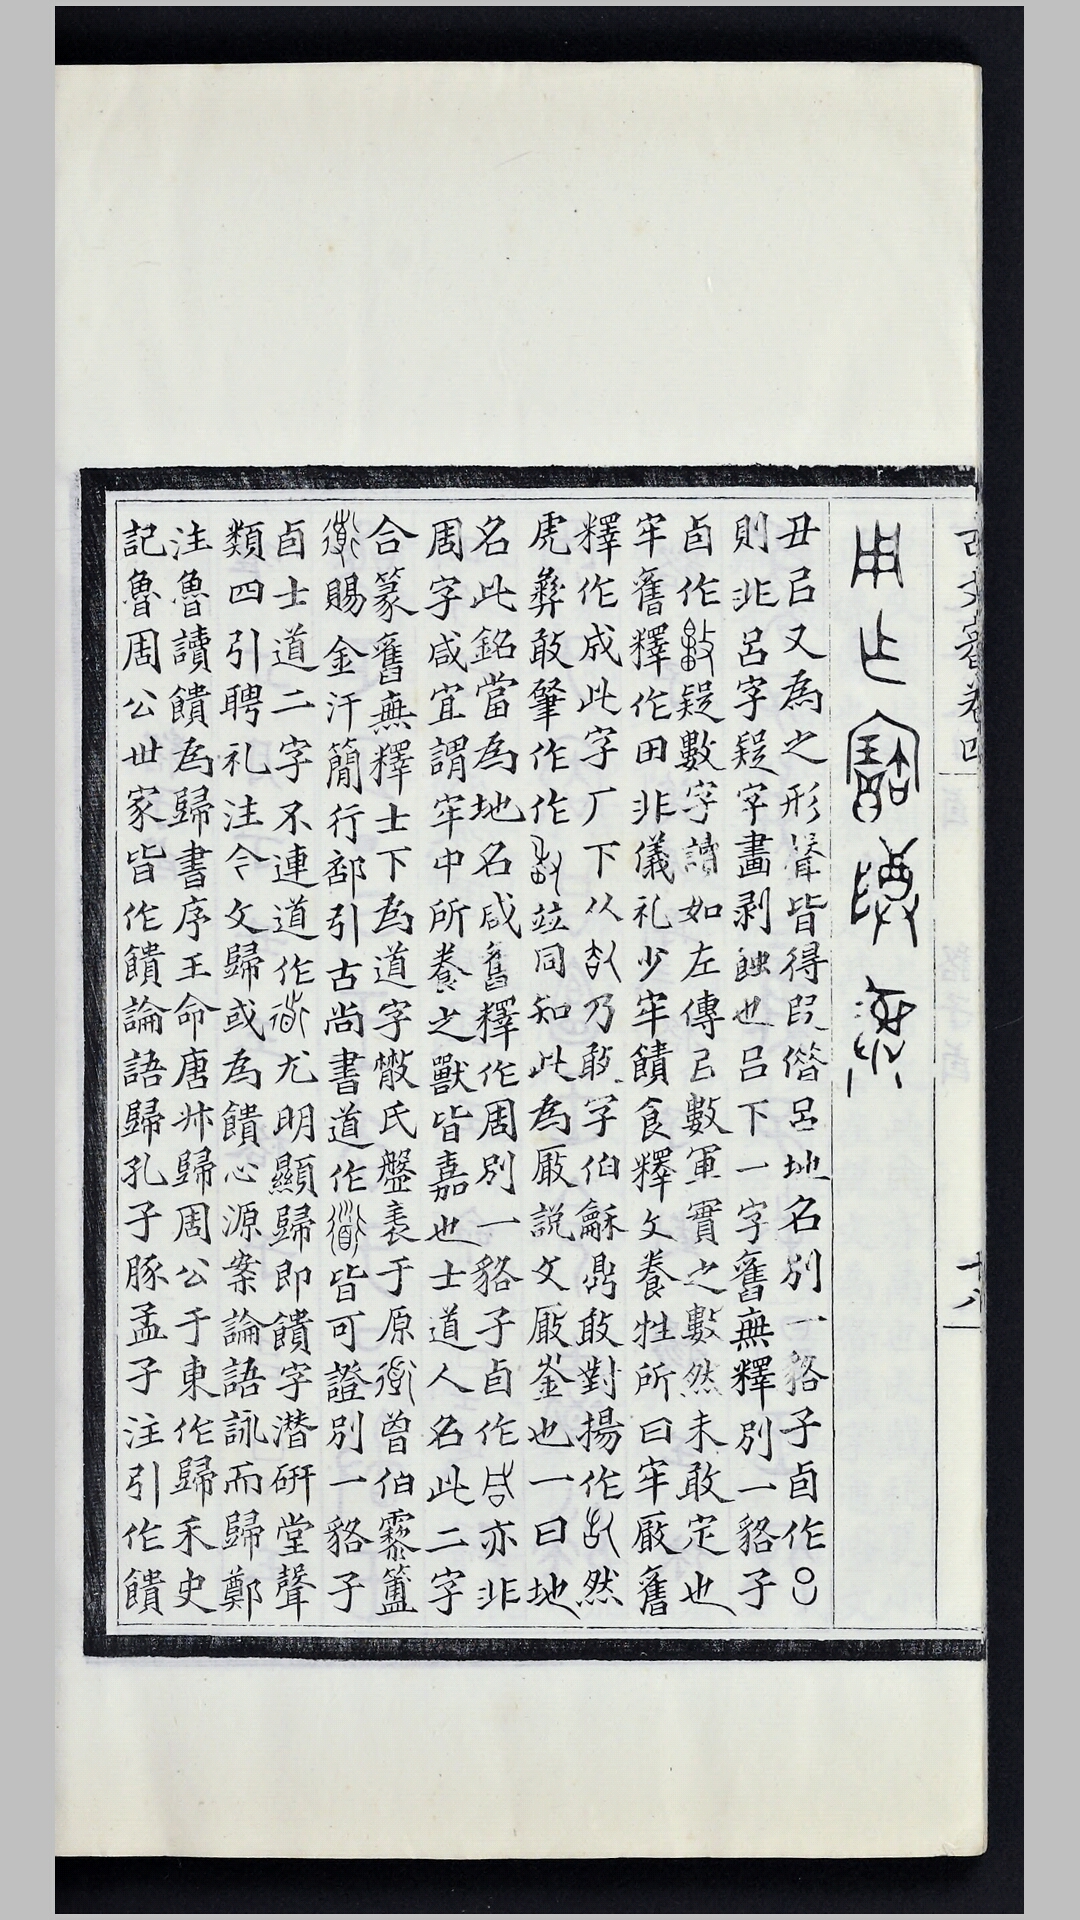 古文審卷四
十八
用作寶尊彝
丑㠯又為之形聲皆得叚偕呂地名別一貉子卣作
則非呂字疑字畫剥蝕也呂下一字舊無釋別一貉子
卣作疑數字讀如左傳㠯數軍實之數然未敢定也
牢舊釋作田非儀礼少牢饋食釋文養牲所曰牢厰舊
釋作成此字厂下从乃敢字伯龢鼎敢對揚作然
虎彝敢肇作作竝同知此為厰説文厰崟也一曰地
名此銘當為地名咸舊釋作周別一貉子卣作亦非
周字咸宜謂牢中所養之獸皆嘉也士道人名此二字
合篆舊無釋士下為道字散氏盤表于原曾伯霥簠
賜金汗簡行部引古尚書道作皆可證別一貉子
卣士道二字不連道作尤明顯歸即饋字潛研堂聲
類四引聘礼注今文歸或為饋心源案論語詠而歸鄭
注魯讀饋為歸書序王命唐叔歸周公于東作歸禾史
記魯周公世家皆作饋論語歸孔子豚孟子注引作饋